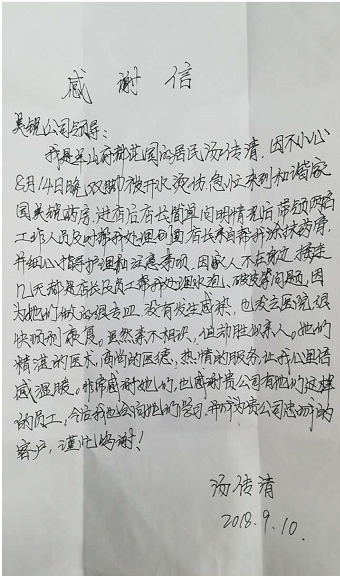 感谢信
吴锐公司领导：
我是兰山府都花园的居民汤传清，因不小心
8月14日晚双脚被开水烫伤，急忙来到和谐家
园吴锐药房，进店后店长简单问明情况后带领两名
工作人员及时帮我处理创面，店长亲自帮我涂抹药膏，
并细心指导护理和注意事项。因家人不在身边，接连
几天都是店长及员工帮我处理水泡、破皮等问题，因
为她们做的很专业，没有发生感染，也没去医院，很
快顺利康复。虽然素不相识，但动胜似亲人。她们
精湛的医术，高尚的医德，热情的服务，让我心里倍
感温暖。非常感谢她们，也感谢贵公司有她们这样
的员工，今后我也会向她们学习，并成为贵公司忠诚的
客户，谨此鸣谢！
汤传清
2018.9.10.